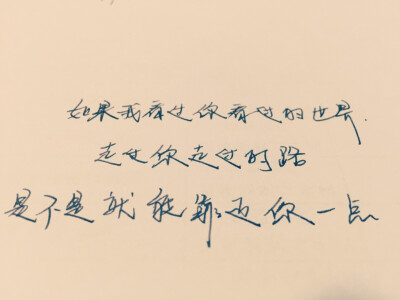 如果我看过你看过的世界.
走过你走过的路
是不是就能靠近你一点